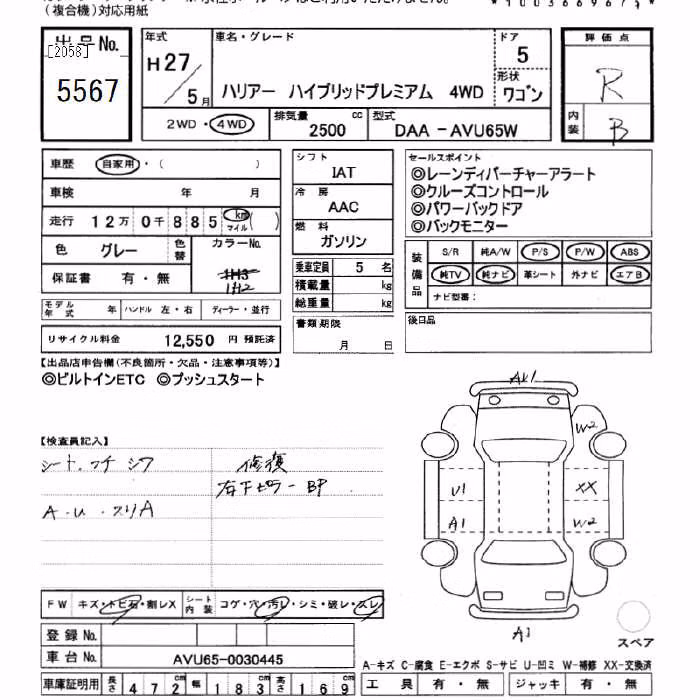 (複合機)対応用紙
出品No.
[2058]
5567
年式
H27/5月
車名・グレード
ハリアー ハイブリッドプレミアム 4WD
ドア
5
形状
ワゴン
評価点
R
内装
B
2WD・4WD
排気量
2500 cc
型式
DAA-AVU65W
車歴 自家用・( )
車検 年 月
走行 12万0千885 km マイル ( )
色 グレー 色替
カラーNo.
1H2
保証書 有・無
モデル年式 年 ハンドル 左・右 ディーラー・並行
リサイクル料金 12,550 円 預託済
シフト
IAT
冷房
AAC
燃料
ガソリン
乗車定員 5 名
積載量 kg
総重量 kg
書類期限
月 日
セールスポイント
◎レーンディパーチャーアラート
◎クルーズコントロール
◎パワーバックドア
◎バックモニター
装備品
S/R 純A/W P/S P/W ABS
純TV 純ナビ 革シート 外ナビ エアB
ナビ型番:
後日品
【出品店申告欄(不良箇所・欠品・注意事項等)】
◎ビルトインETC ◎プッシュスタート
【検査員記入】
シート、フチ シワ
A・U・スリA
修復
右下ピラーBP
A1
W2
U1
XX
A1
W2
A1
FW キズ・トビ石・割レX シート内装 コゲ・穴・汚レ・シミ・破レ・スレ
登録No.
車台No. AVU65-0030445
車庫証明用 長さ 472 幅 183 高さ 169
スペア
A-キズ C-腐食 E-エクボ S-サビ U-凹ミ W-補修 XX-交換済
工具 有・無 ジャッキ 有・無